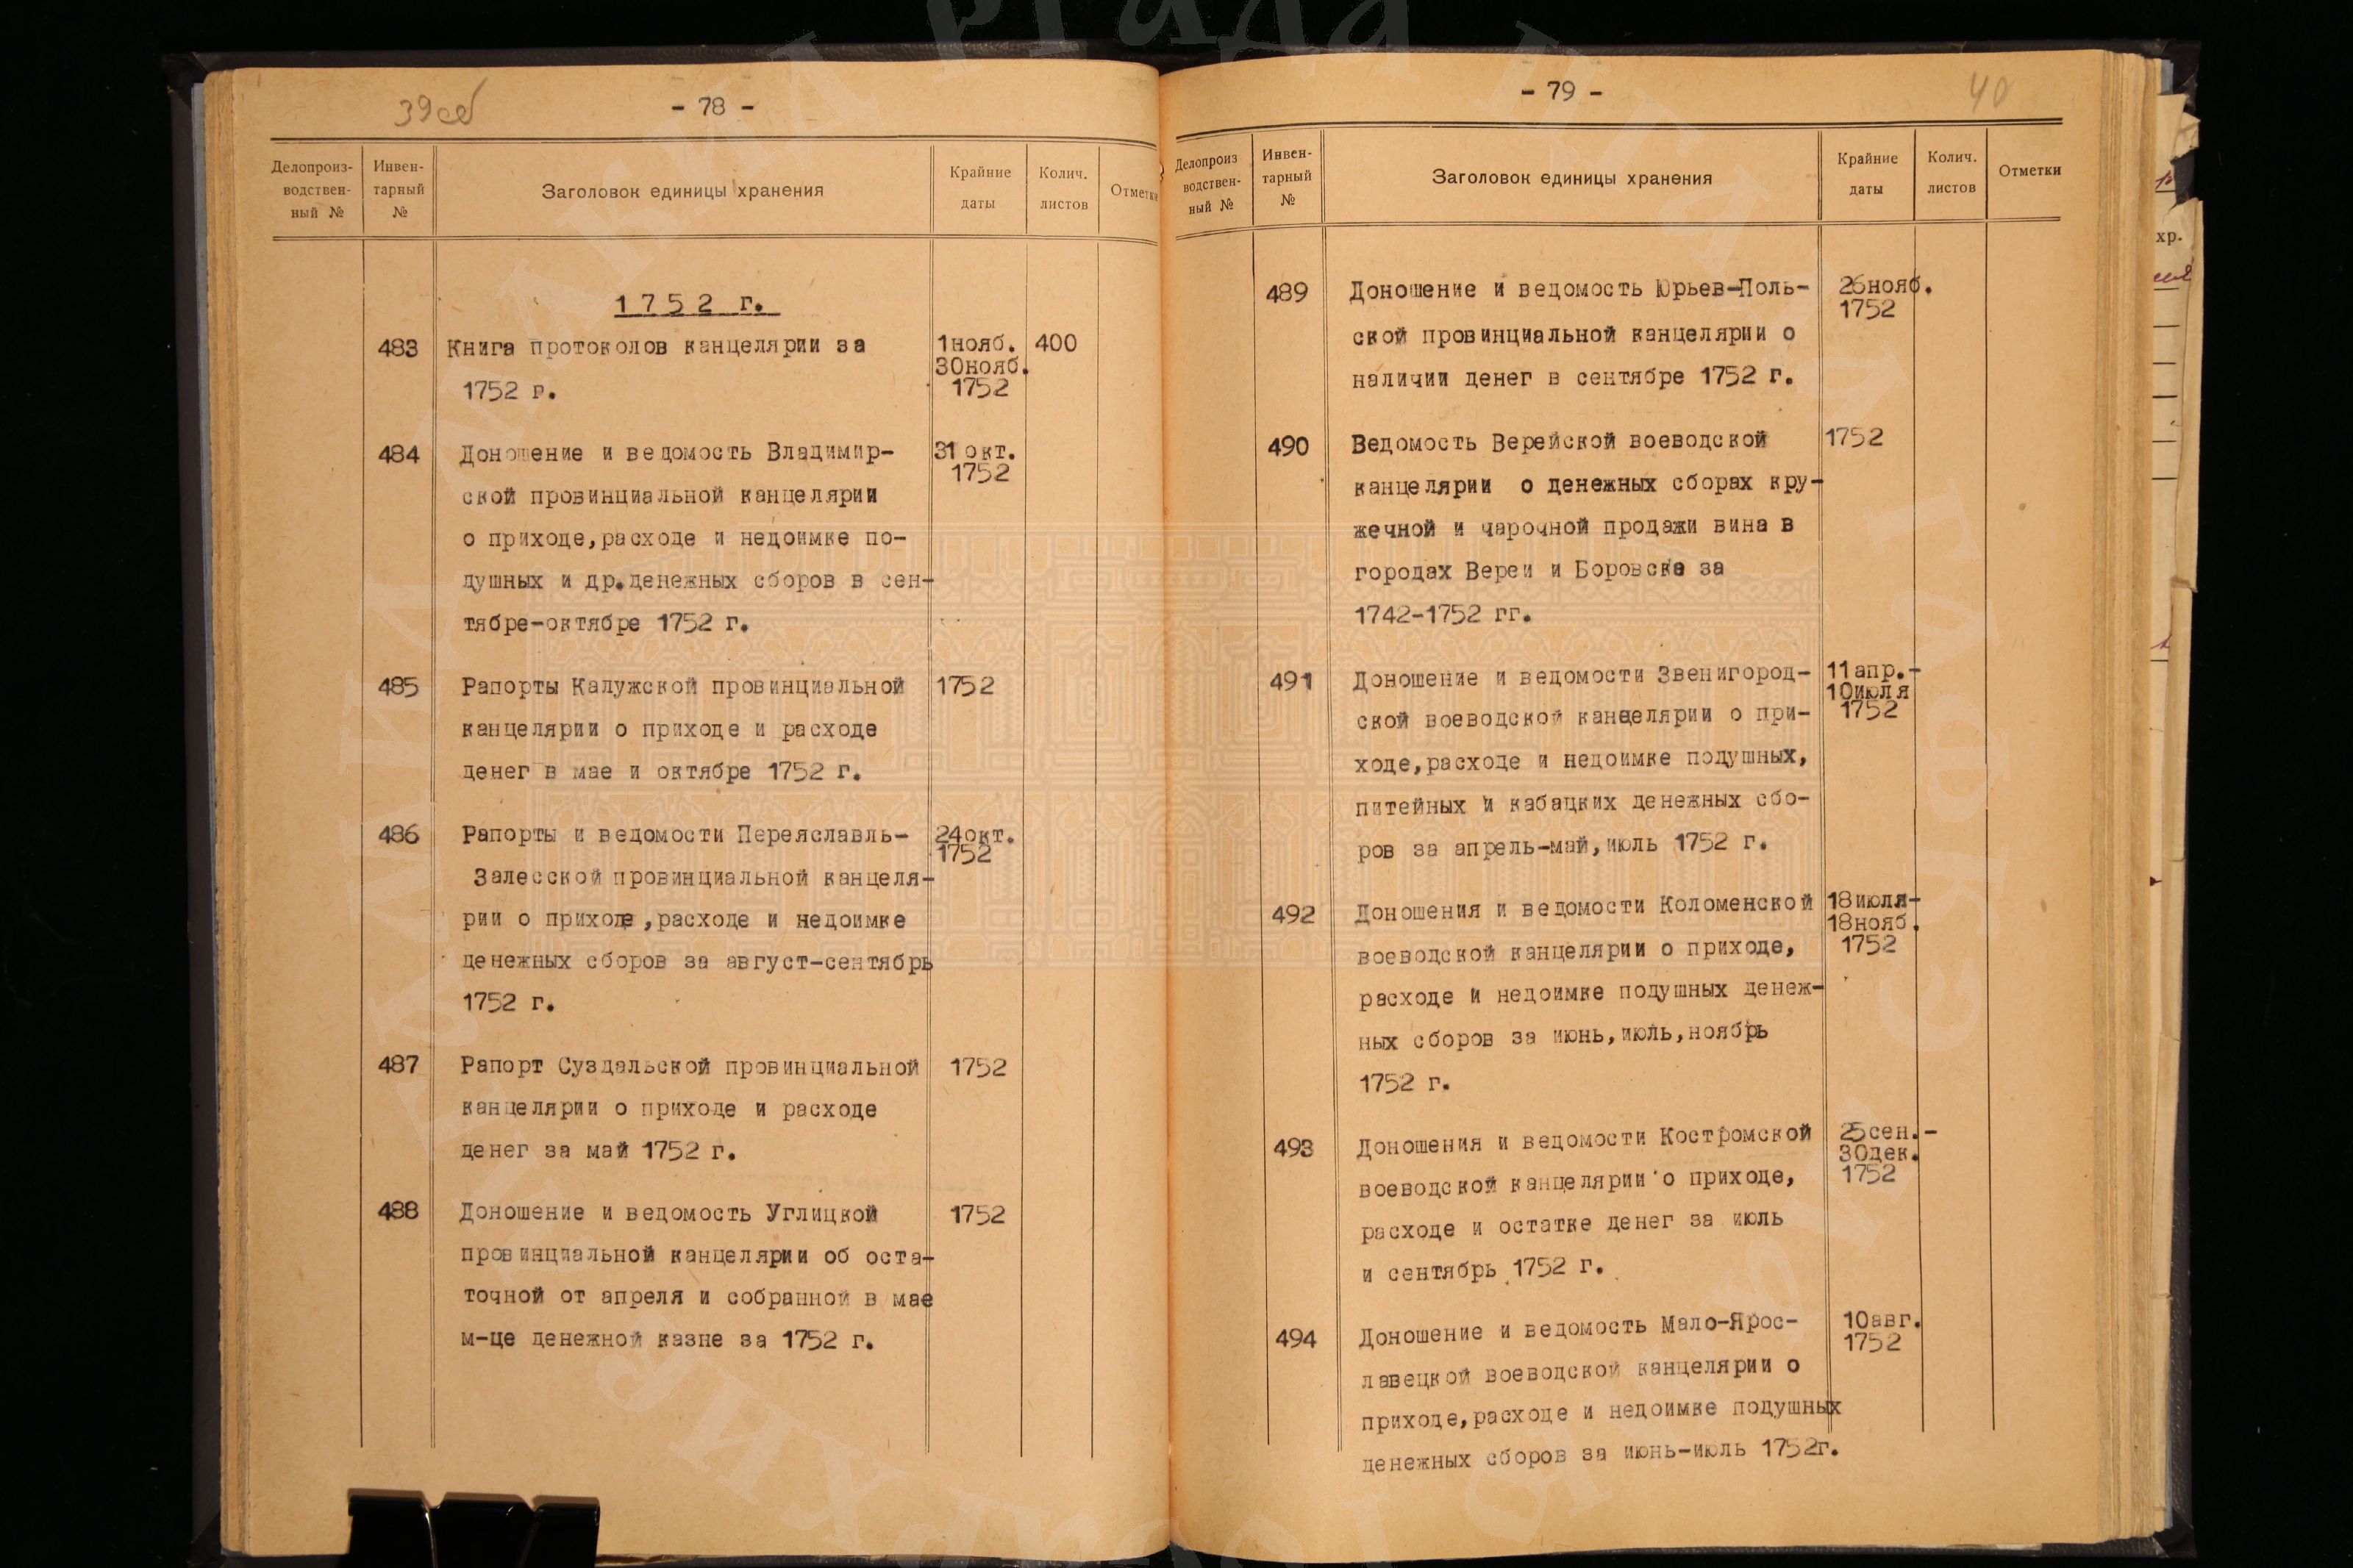 39об
- 78 -
Делопроиз-
водствен-
ный №
Инвен-
тарный
№
Заголовок единицы хранения
Крайние
даты
Колич.
листов
Отметки
1752 г.
483 Книга протоколов канцелярии за 1нояб. 400
30нояб.
1752 г. 1752
484 Доношение и ведомость Владимир- 31 окт.
1752
ской провинциальной канцелярии
о приходе,расходе и недоимке по-
душных и др.денежных сборов в сен-
тябре-октябре 1752 г.
485 Рапорты Калужской провинциальной 1752
канцелярии о приходе и расходе
денег в мае и октябре 1752 г.
486 Рапорты и ведомости Переяславль- 24окт.
1752
Залесской провинциальной канцеля-
рии о приходе,расходе и недоимке
денежных сборов за август-сентябрь
1752 г.
487 Рапорт Суздальской провинциальной 1752
канцелярии о приходе и расходе
денег за май 1752 г.
488 Доношение и ведомость Углицкой 1752
провинциальной канцелярии об оста-
точной от апреля и собранной в мае
м-це денежной казне за 1752 г.
- 79 -
40
Делопроиз
водствен-
ный №
Инвен-
тарный
№
Заголовок единицы хранения
Крайние
даты
Колич.
листов
Отметки
489 Доношение и ведомость Юрьев-Поль- 26нояб.
1752
ской провинциальной канцелярии о
наличии денег в сентябре 1752 г.
490 Ведомость Верейской воеводской 1752
канцелярии о денежных сборах кру-
жечной и чарочной продажи вина в
городах Вереи и Боровске за
1742-1752 гг.
491 Доношение и ведомости Звенигород- 11апр.-
10июля
ской воеводской канцелярии о при- 1752
ходе,расходе и недоимке подушных,
питейных и кабацких денежных сбо-
ров за апрель-май,июль 1752 г.
492 Доношения и ведомости Коломенской 18июля-
18нояб.
воеводской канцелярии о приходе, 1752
расходе и недоимке подушных денеж-
ных сборов за июнь,июль,ноябрь
1752 г.
493 Доношения и ведомости Костромской 25сен.-
30дек.
воеводской канцелярии о приходе, 1752
расходе и остатке денег за июль
и сентябрь 1752 г.
494 Доношение и ведомость Мало-Ярос- 10авг.
1752
лавецкой воеводской канцелярии о
приходе,расходе и недоимке подушных
денежных сборов за июнь-июль 1752г.
хр.